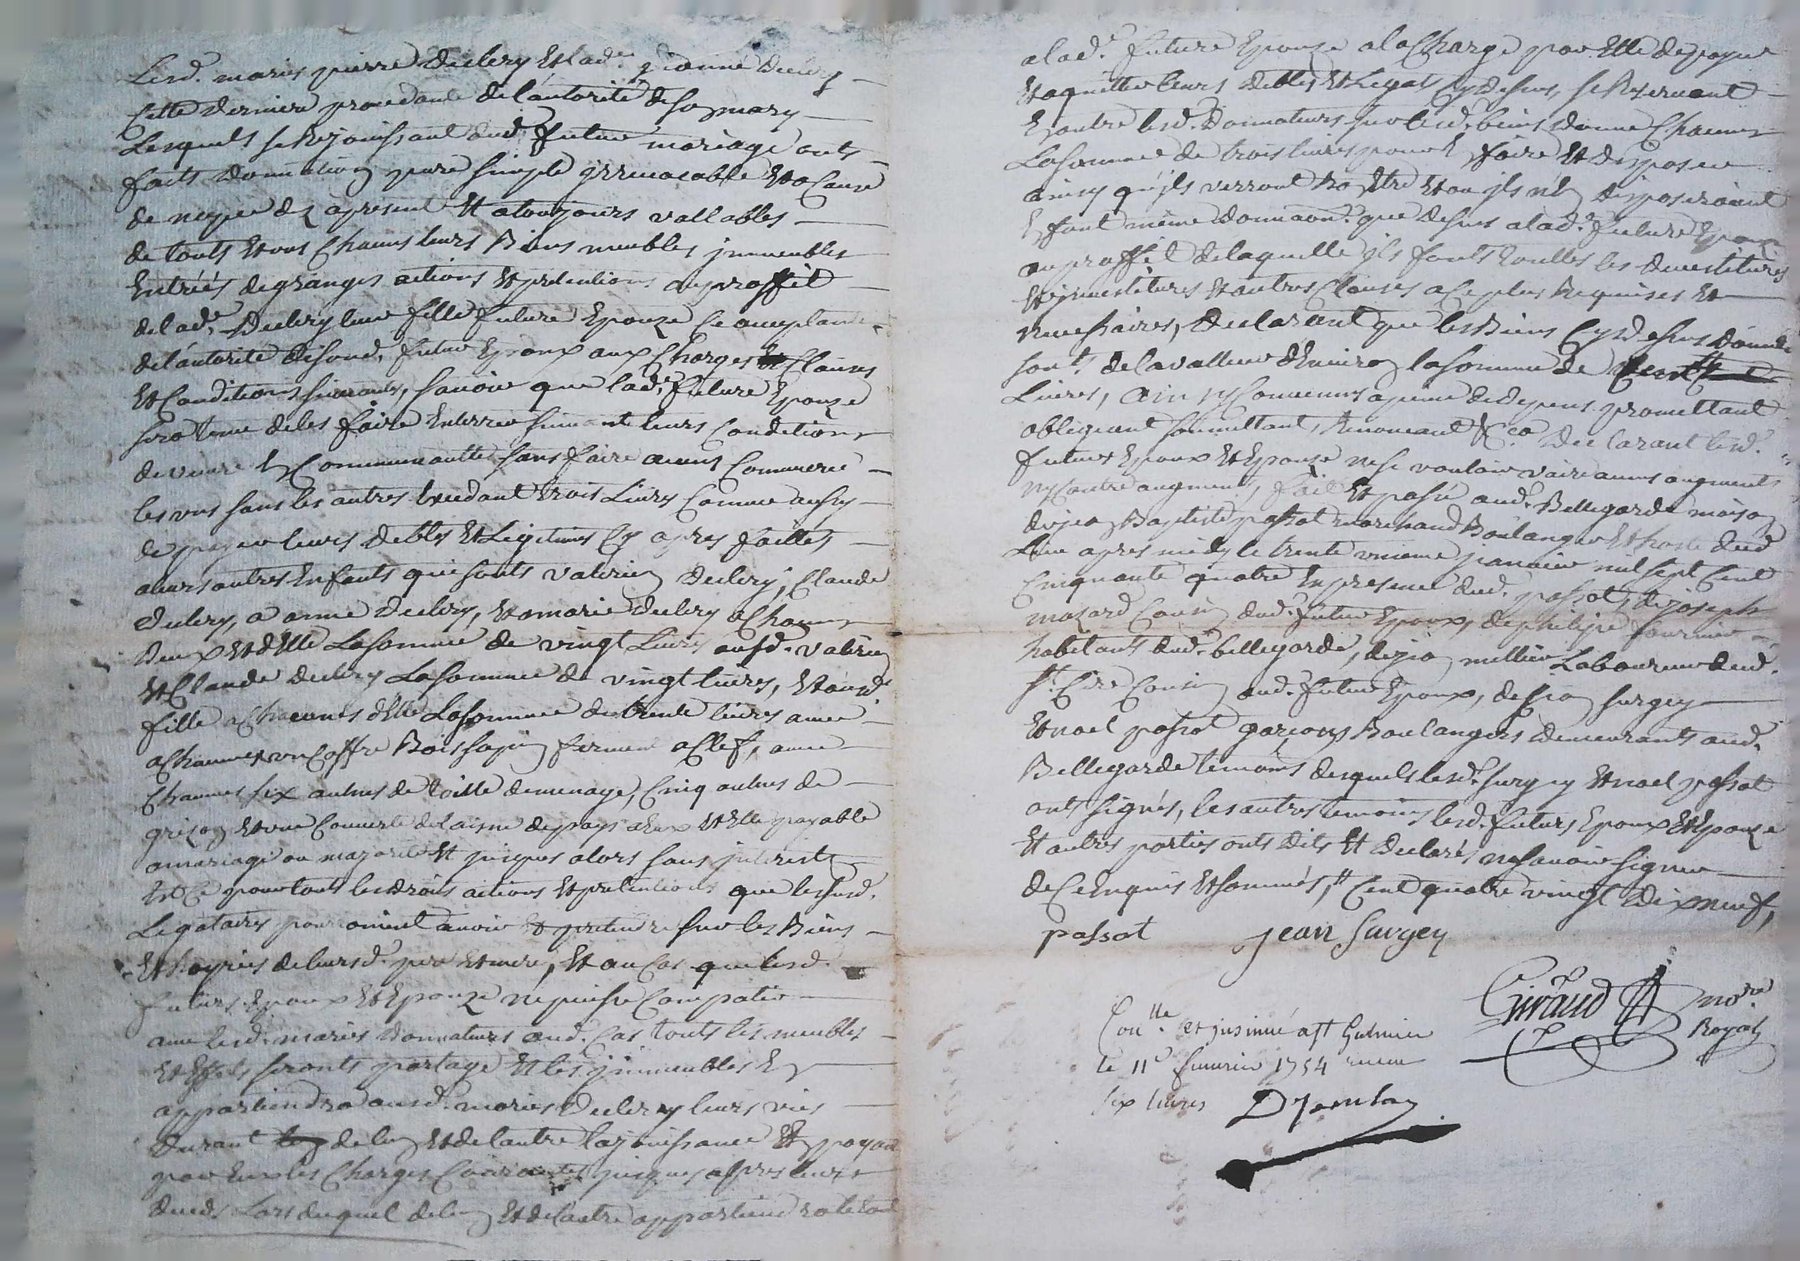 Lesd. mariés pierre Duclery Et lad.e jeanne Duclery
Cette Derniere procedante de l'autorité de son mary
Lesquels se Rejouissant dud. futur mariage onts
faits donnation pure simple jrrevocable Et a Cause
de nopce dez apresent Et atousjours vallables
de touts Et uns Chacuns leurs Biens meubles jmmeubles
Entrées de granges actions Et pretentions au proffit
de lad.e Duclery leur fille future Epouze Ce acceptante
de l'autorité de sond. futur Epoux aux Charges Clauses
Et Conditions suivantes, savoir que lad.e future Epouze
sera tenue de les faire Enterrer suivant leurs Conditions
de vivre En Communautté sans faire aucuns Commerce
les uns sans les autres Excedant trois Livres Comme aussy
de payer leurs debtes Et Legitimes Cy apres faittes
a leurs autres Enfants qui sonts valerien Duclery, Claude
Duclery, a anne Duclery, Et a marie Duclery a Chacun
deux Et d'Elle La somme de vingt Livres ausd. valerien
Et Claude Duclery La somme de vingt livres, Et ausd.
fille a Chacunes d'Elle La somme de trente livres avec
a Chacunes un Coffre Bois sapin fermant a Clef, avec
Chacunes six aulnes de toille de menage, Cinq aulnes de
grison Et une Couverte de laisne de pays a Eux Et Elle payable
a mariage ou majorité Et jusques alors sans jnterests
Et Ce pour touts les droits actions Et pretentions que lesd.
Legataires pourroient avoir Et pretendre sur les Biens
Et hoyries de leursd. pere Et mere, Et au Cas que lesd.
futurs Epoux Et Epouze ne puisse Compatir
avec lesd. mariés donnateurs aud. Cas touts les meubles
Et Effets seronts partagé Et les jmmeubles En
appartiendra ausd. mariés Duclery leurs vies
durant de l'un Et de l'autre la jouissance Et En payant
par Eux les Charges Courantes jusques apres leurs
deceds Lors duquel de l'un Et de l'autre appartiendra le tout
a lad.e future Epouze a la Charge par Elle de payer
Et aquitter leurs debtes Et Legats Cy dessus, se Reservant
En outre lesd. Donnateurs sur lesd. biens donné Chacuns
La somme de trois livres pour En faire Et disposer
ainsy qu'ils verront Bon Etre Et ou jls n'En disposeroient
En font même donnaon. que dessus a lad.e future Epouze
au proffit de laquelle jls fonts touttes les devestitures
Et jnvestitures Et autres Clauses a Ce plus Requises Et
necessaires, Declarant que les Biens Cy dessus donnés
sont de la valleur d'Environ la somme de
Livres, ainsy Convenus a peine de depens promettant
obligeant soumettant, Renonceant &Ca Declarant lesd.
futurs Epoux Et Epouze ne se vouloir faire aucuns augment
ny Contre augment, fait Et passé aud. Bellegarde maison
de jean Baptiste passot marchand Boulanger Et hoste dud.
Lieu apres midy le trente unieme janvier mil sept Cent
Cinquante quatre En presence dud. passot, de joseph
mazard Cousin dud. futur Epoux, de philipe fournier
habitants dud. bellegarde, de jean millier Laboureur dud.
st. Cire Cousin aud. futur Epoux, de jean surgey
Et noel passot garçons Boulangers demeurants aud.
Bellegarde temoins desquels lesd. surgey Et noel passot
onts signés, les autres temoins lesd. futurs Epoux Et Epouze
Et autres parties onts dits Et declarés ne savoir signer
de Ce Enquis Et sommés, # Cent quatre vingt dix neuf,
passot jean surgey
Giraud nore. Royal
Con.lle et jnsinué a st Galmier
le 11e fevrier 1754 receu
six livres